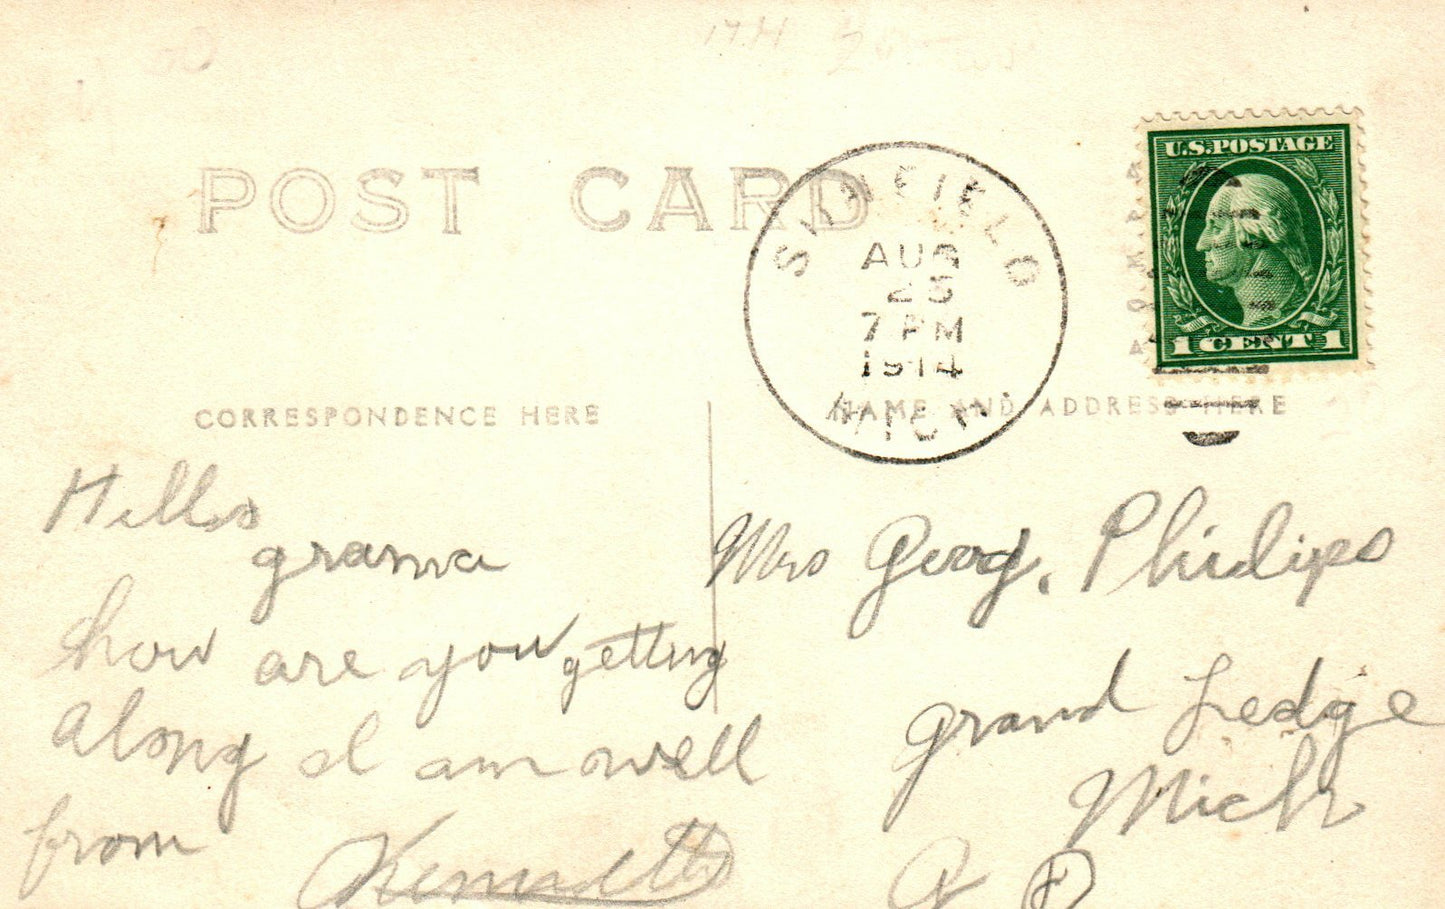 POST CARD
U.S.POSTAGE
1 CENT 1
SUNFIELD
AUG
25
7 PM
1914
MICH.
CORRESPONDENCE HERE
NAME AND ADDRESS HERE
Hello
grama
how are you getting
along I am well
from Kenneth
Mrs Georg. Philips
Grand Ledge
Mich